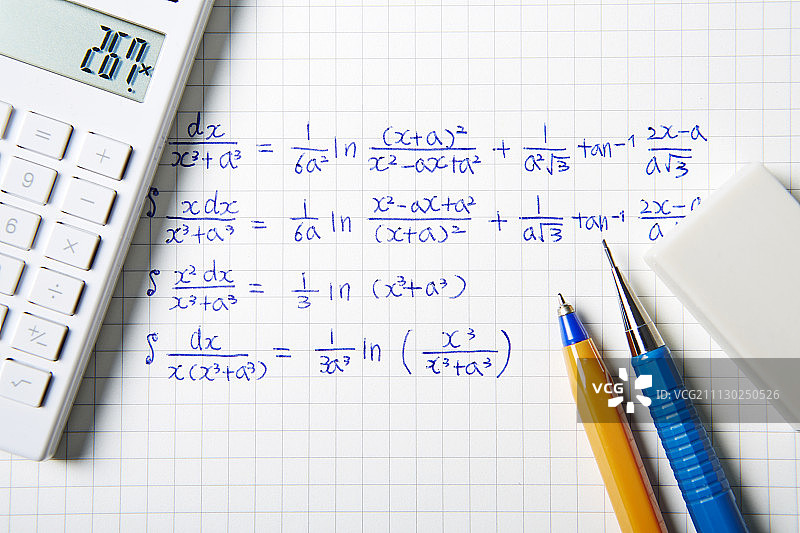 dx/(x³+a³) = 1/(6a²) ln (x+a)²/(x²-ax+a²) + 1/(a²√3) tan⁻¹ (2x-a)/(a√3)
∫ xdx/(x³+a³) = 1/(6a) ln (x²-ax+a²)/(x+a)² + 1/(a√3) tan⁻¹ (2x-a)/a
∫ x²dx/(x³+a³) = 1/3 ln (x³+a³)
∫ dx/(x(x³+a³)) = 1/(3a³) ln (x³/(x³+a³))
=
+
9
−
6
×
÷
+/−
√
VCG
VCG
ID: VCG211130250526